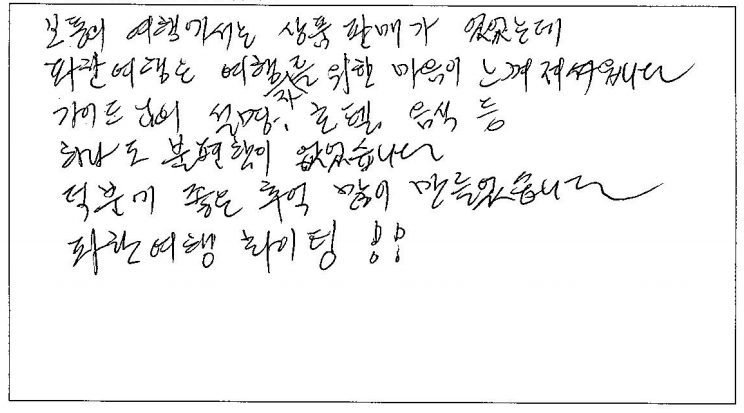 보통의 여행에서는 상품 판매가 있었는데
파란여행은 여행자를 위한 마음이 느껴져싸웁니다
가이드님의 설명, 호텔, 음식 등
하나도 불편함이 없었습니다
덕분에 좋은 추억 많이 만들었습니다
파란여행 화이팅!!